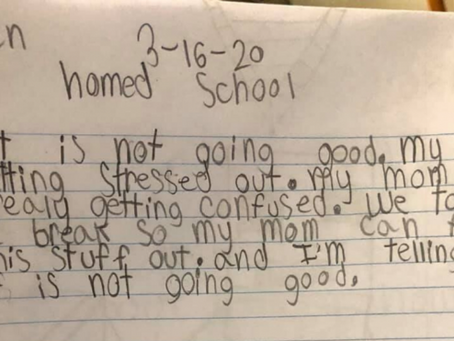 n 3-16-20
homed School
t is not going good. my
tting Stressed out. My mom
realy getting confused. We to
break so my mom can f
his stuff out. and I'm telling
t is not going good.